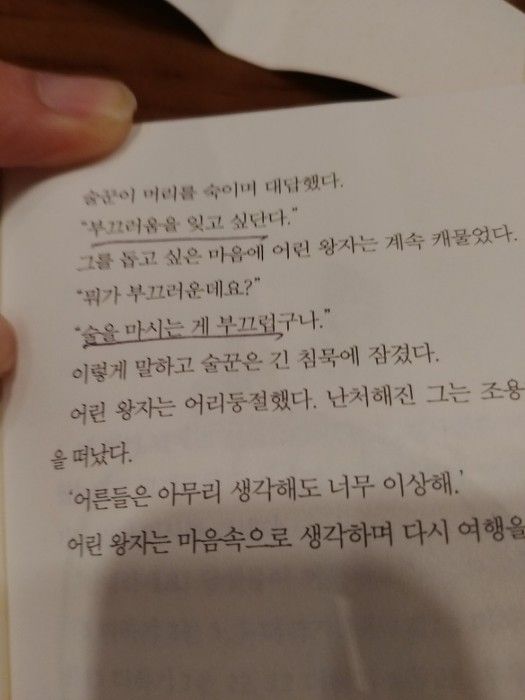 술꾼이 머리를 숙이며 대답했다.
“부끄러움을 잊고 싶단다.”
그를 돕고 싶은 마음에 어린 왕자는 계속 캐물었다.
“뭐가 부끄러운데요?”
“술을 마시는 게 부끄럽구나.”
이렇게 말하고 술꾼은 긴 침묵에 잠겼다.
어린 왕자는 어리둥절했다. 난처해진 그는 조용
을 떠났다.
‘어른들은 아무리 생각해도 너무 이상해.’
어린 왕자는 마음속으로 생각하며 다시 여행을